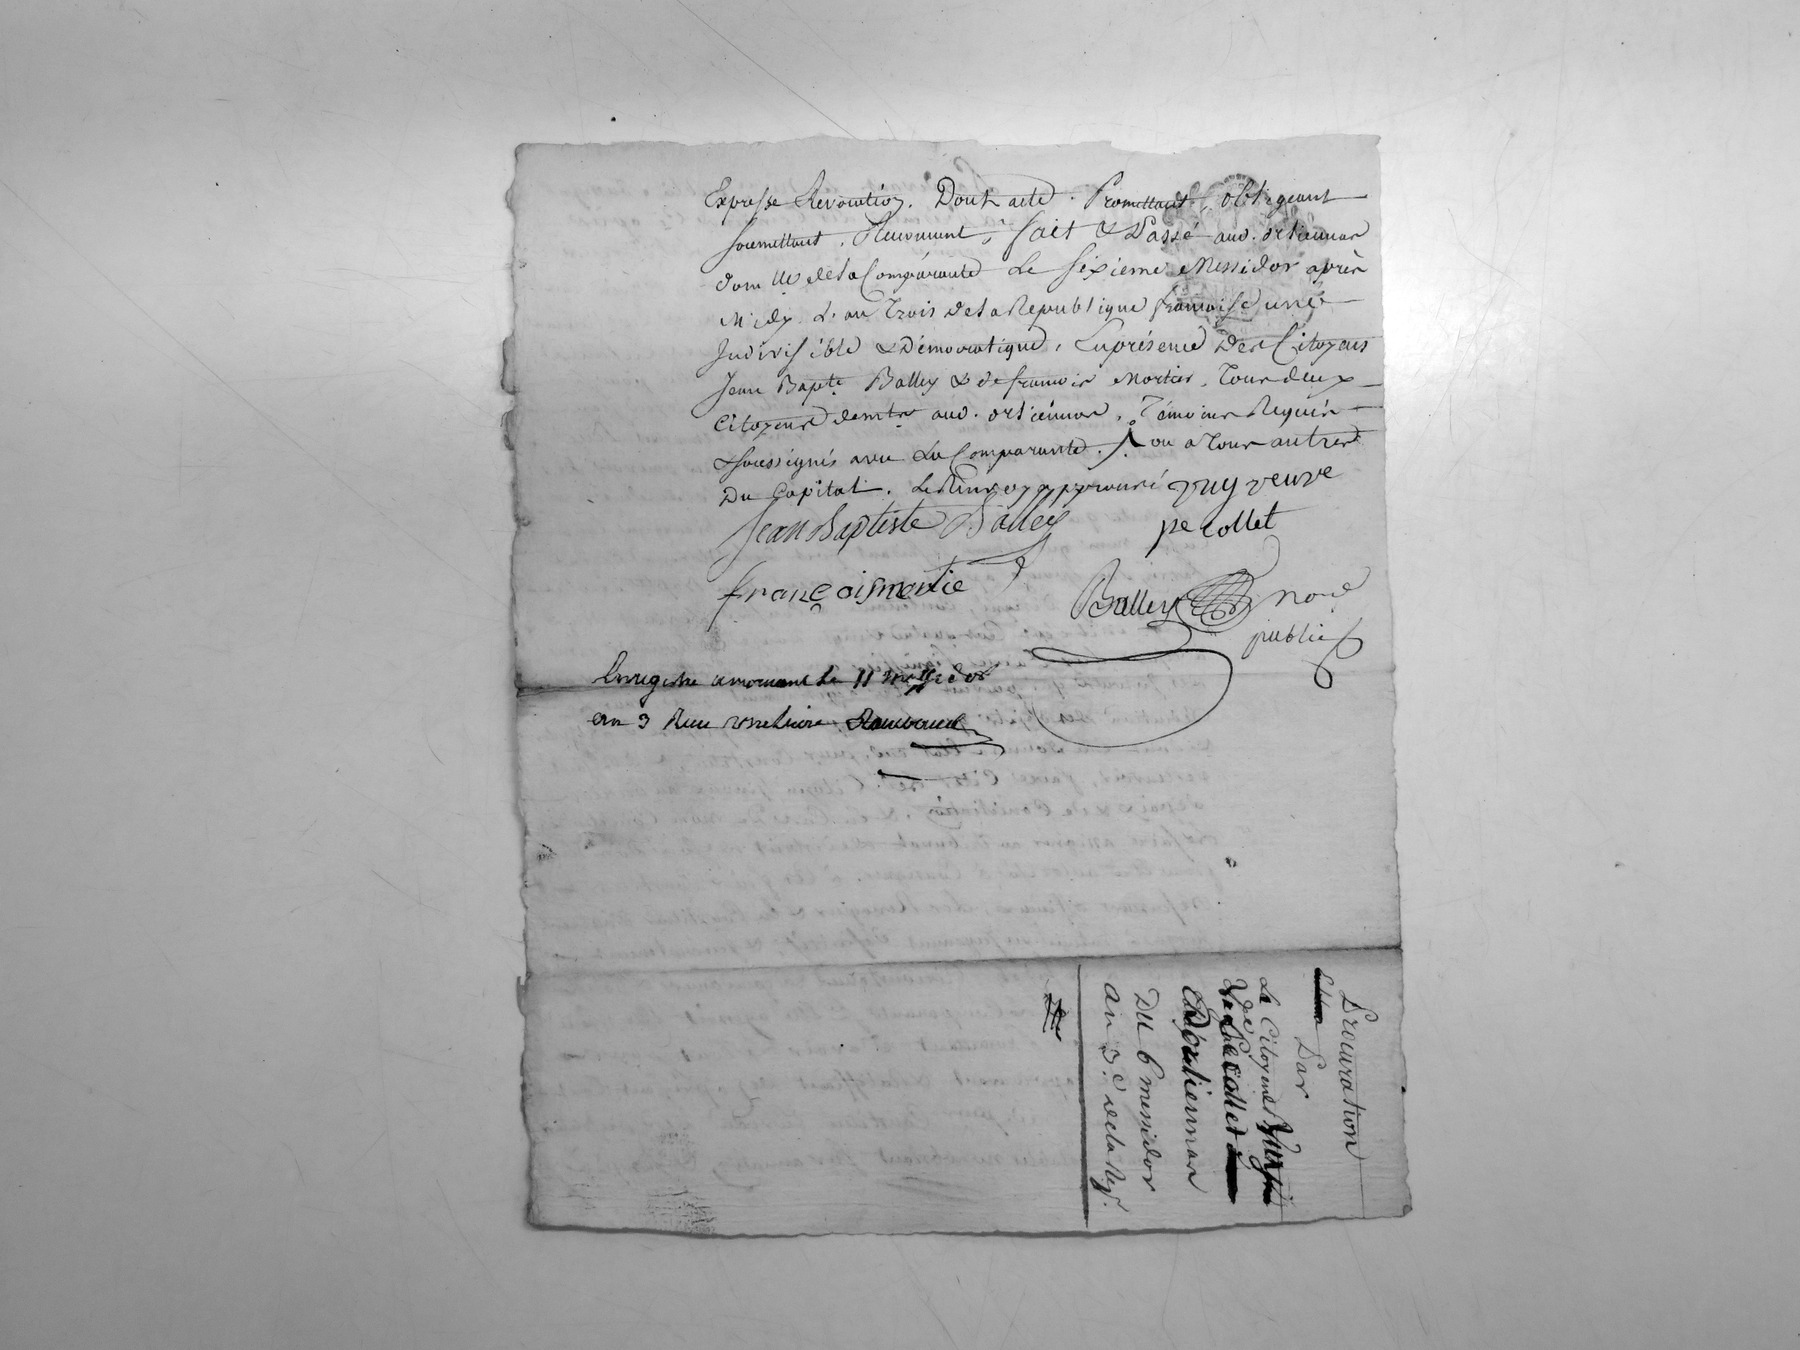 Expresse Revocation. Dont acte. Promettant, obligeant
soumettant, Renonceant, fait & Passé aud. ortiennas
domlle de la Comparante Le sixieme Messidor après
Midy L'an Trois de la Republique francoise une
Indivisible & Démocratique, En présence Des Citoyens
Jean Bapte Balley & de francois Mortier, Tous deux
Citoyens demts aud. ortiennas, Témoins Requis
& soussignés avec La Comparante. ou a Tous autres
Du Capital. Le Renvoy approuvé vuy veuve
Jean Baptiste Balley pecollet
françois mortie Balley nore
public
Enregistre a le 11 messidor
an 3 Recu
Procuration
Par
La Citoyene Vuy
Ve Pecollet
D'ortiennas
Du 6 messidor
an 3e de la Rep.